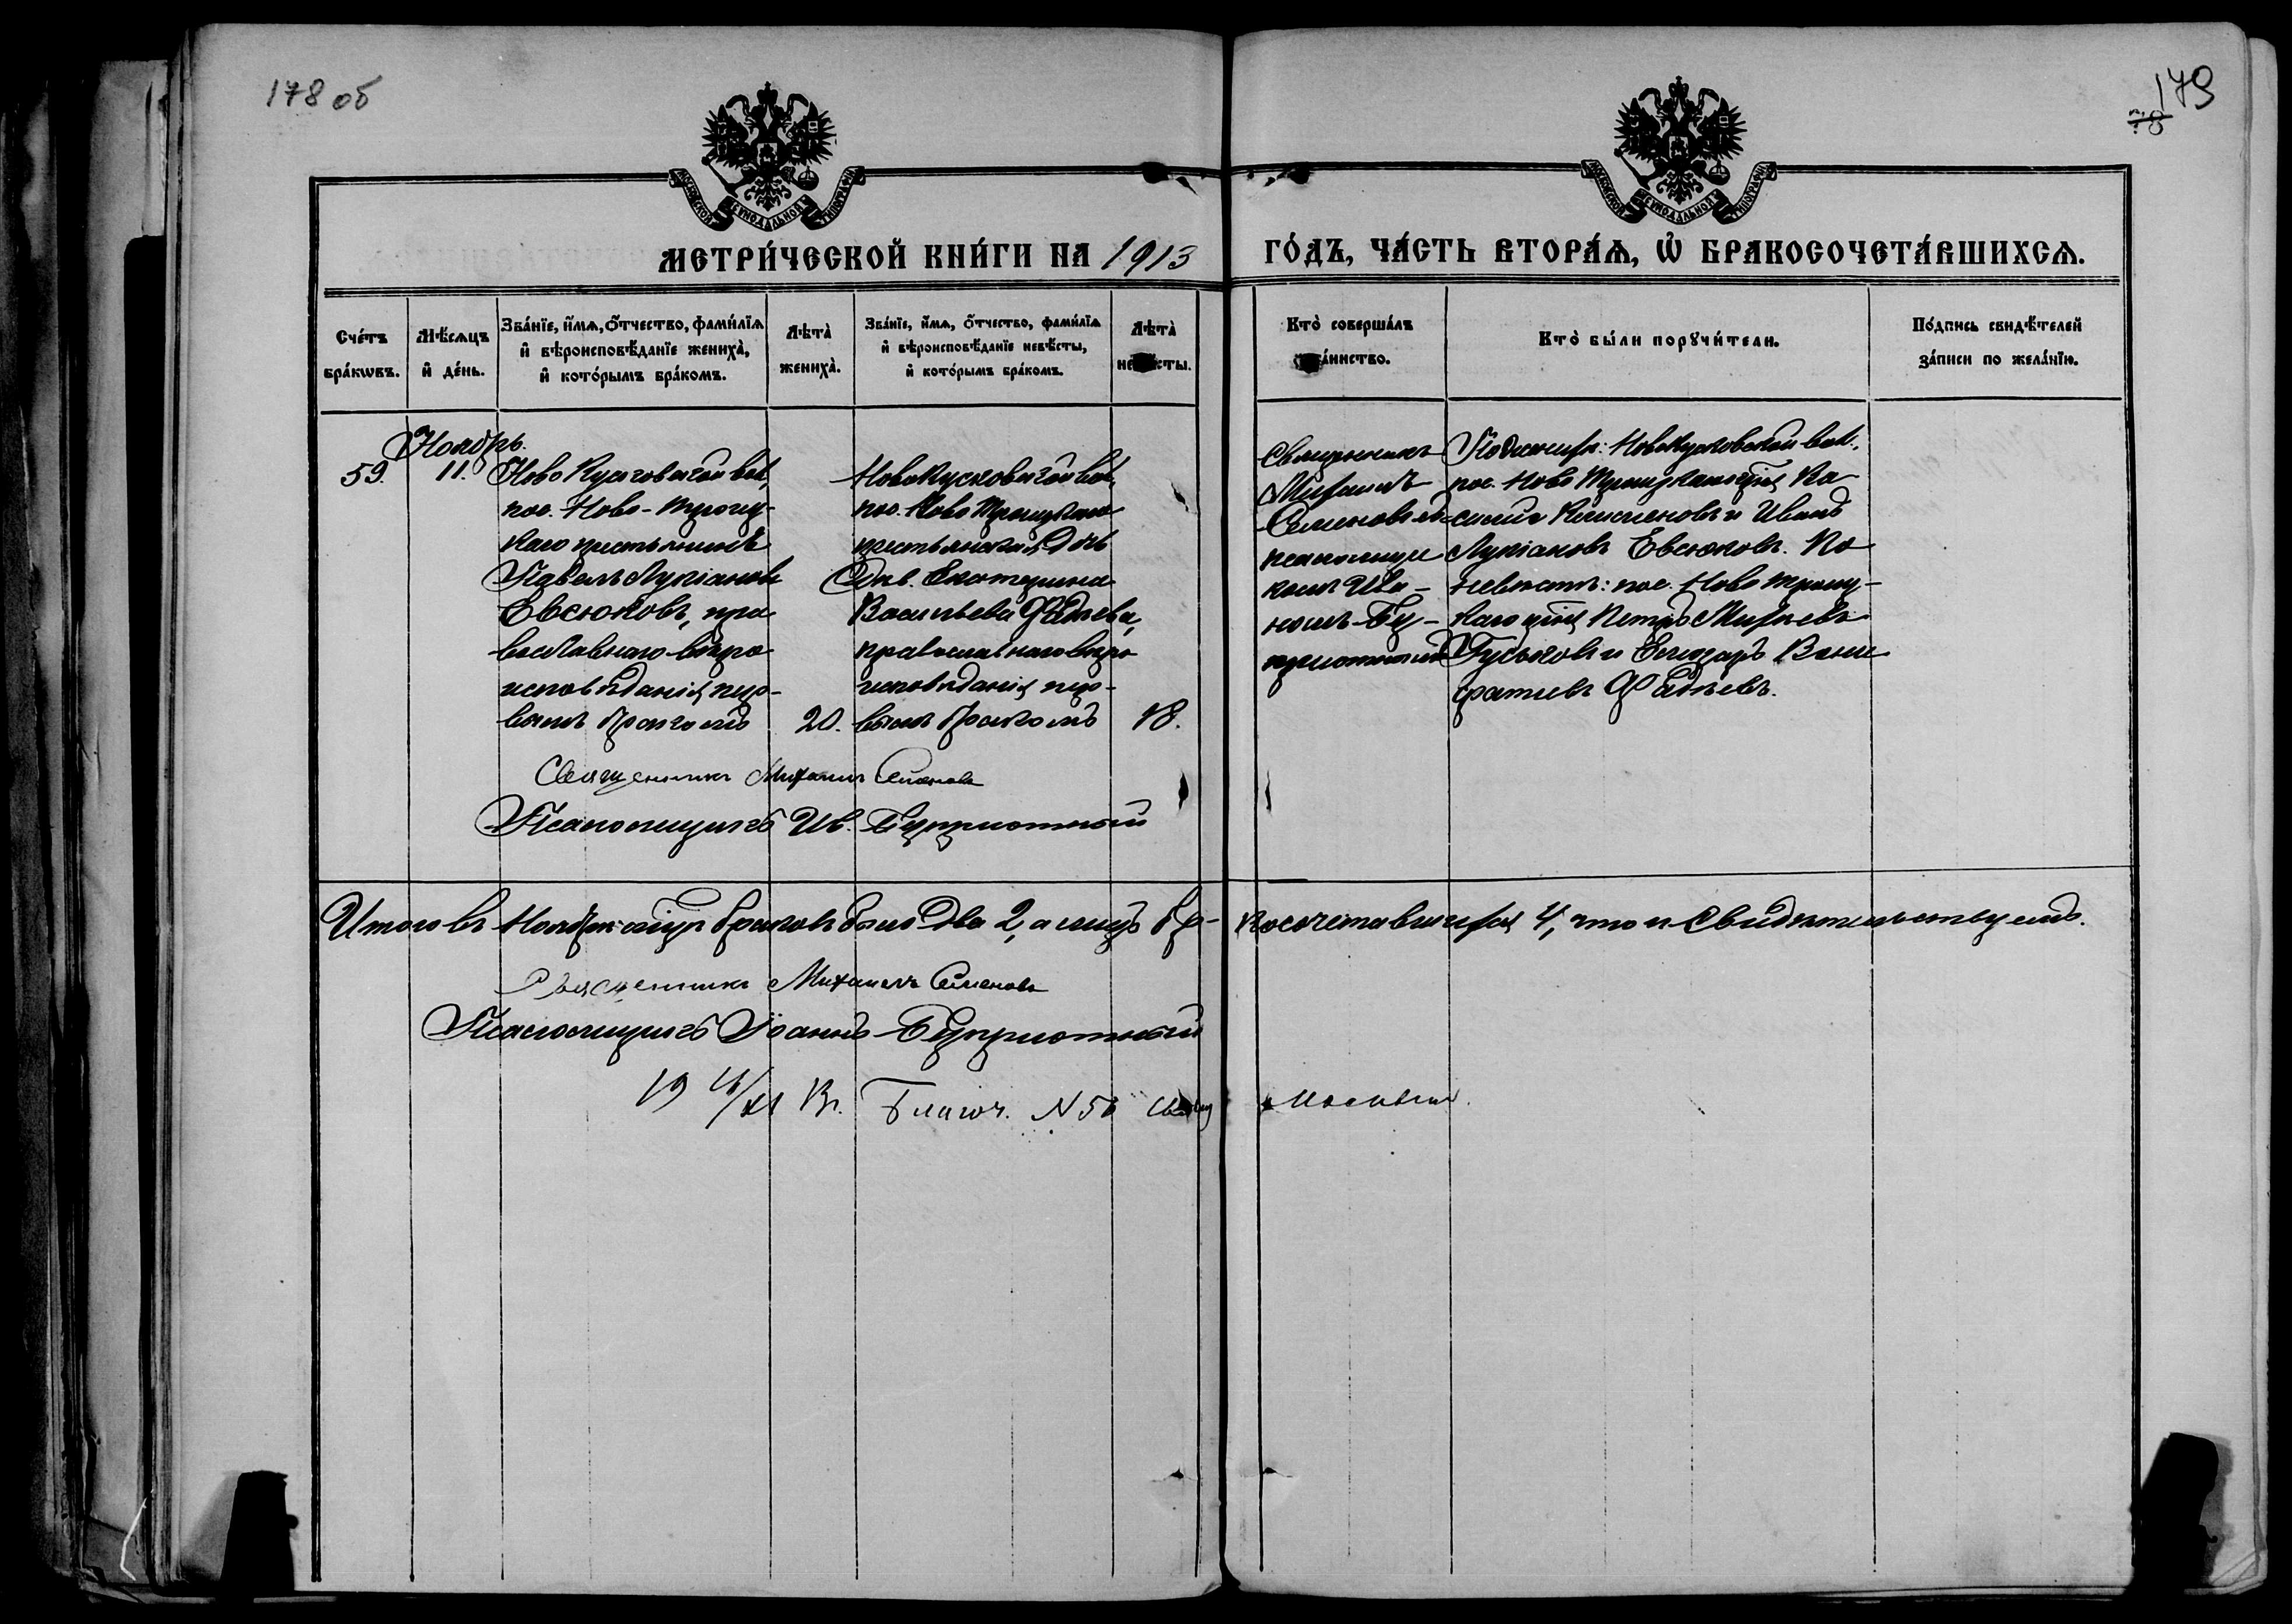 178 об
179
78
МОСКОВСКОЙ СУНОДАЛЬНОЙ ТИПОГРАФІИ
МОСКОВСКОЙ СУНОДАЛЬНОЙ ТИПОГРАФІИ
МЕТРИ́ЧЕСКОЙ КНИ́ГИ НА 1913 ГО́ДЪ, ЧА́СТЬ ВТОРА́Ѧ, Ѡ҆ БРАКОСОЧЕТА́ВШИХСѦ.
Сче́тъ
бра́кѡвъ.
Мѣ́сѧцъ
и҆ де́нь.
Зва́нїе, и҆́мѧ, ѻ҆́тчество, фами́лїѧ
и҆ вѣроисповѣ́данїе жениха̀,
и҆ кото́рымъ бра́комъ.
Лѣта̀
жениха̀.
Зва́нїе, и҆́мѧ, ѻ҆́тчество, фами́лїѧ
и҆ вѣроисповѣ́данїе невѣ́сты,
и҆ кото́рымъ бра́комъ.
Лѣта̀
невѣ́сты.
Кто̀ соверша́лъ
таи́нство.
Кто̀ бы́ли порꙋчи́тели.
По́дпись свидѣ́телей
за́писи по жела́нїю.
Ноябрь.
59.
11.
Ново Кусковской вол,
пос. Ново-Троиц-
каго крестьянинъ
Павелъ Лукіановъ
Евсюковъ, пра
вославнаго вѣро
исповѣданія пер-
вымъ бракомъ
20.
НовоКусковской вол,
пос. Ново Троицкаго
крестьянская дочь
дѣв. Екатерина
Васильева Фадѣева,
православнаго вѣро
исповѣданія пер-
вымъ бракомъ
18.
Священникъ
Михаилъ
Семеновъ съ
псаломщи
комъ Ива-
номъ Бу-
По женихѣ: Новокусковской вол.,
пос. Ново Троицкаго
Клименовъ и Иванъ
Лукіановъ Евсюковъ. По
невѣстѣ: пос. Ново Троиц-
каго Петръ
Гуськовъ и
Фадѣевъ.
Священникъ Михаилъ Семеновъ
Псаломщикъ Ив.
Итого въ Ноябрѣ мѣсяцѣ браковъ было два 2, а лицъ бра- косочетавшихся 4, что и свидѣтельствуемъ.
Священникъ Михаилъ Семеновъ
Псаломщикъ Іоаннъ
Благоч. N 50